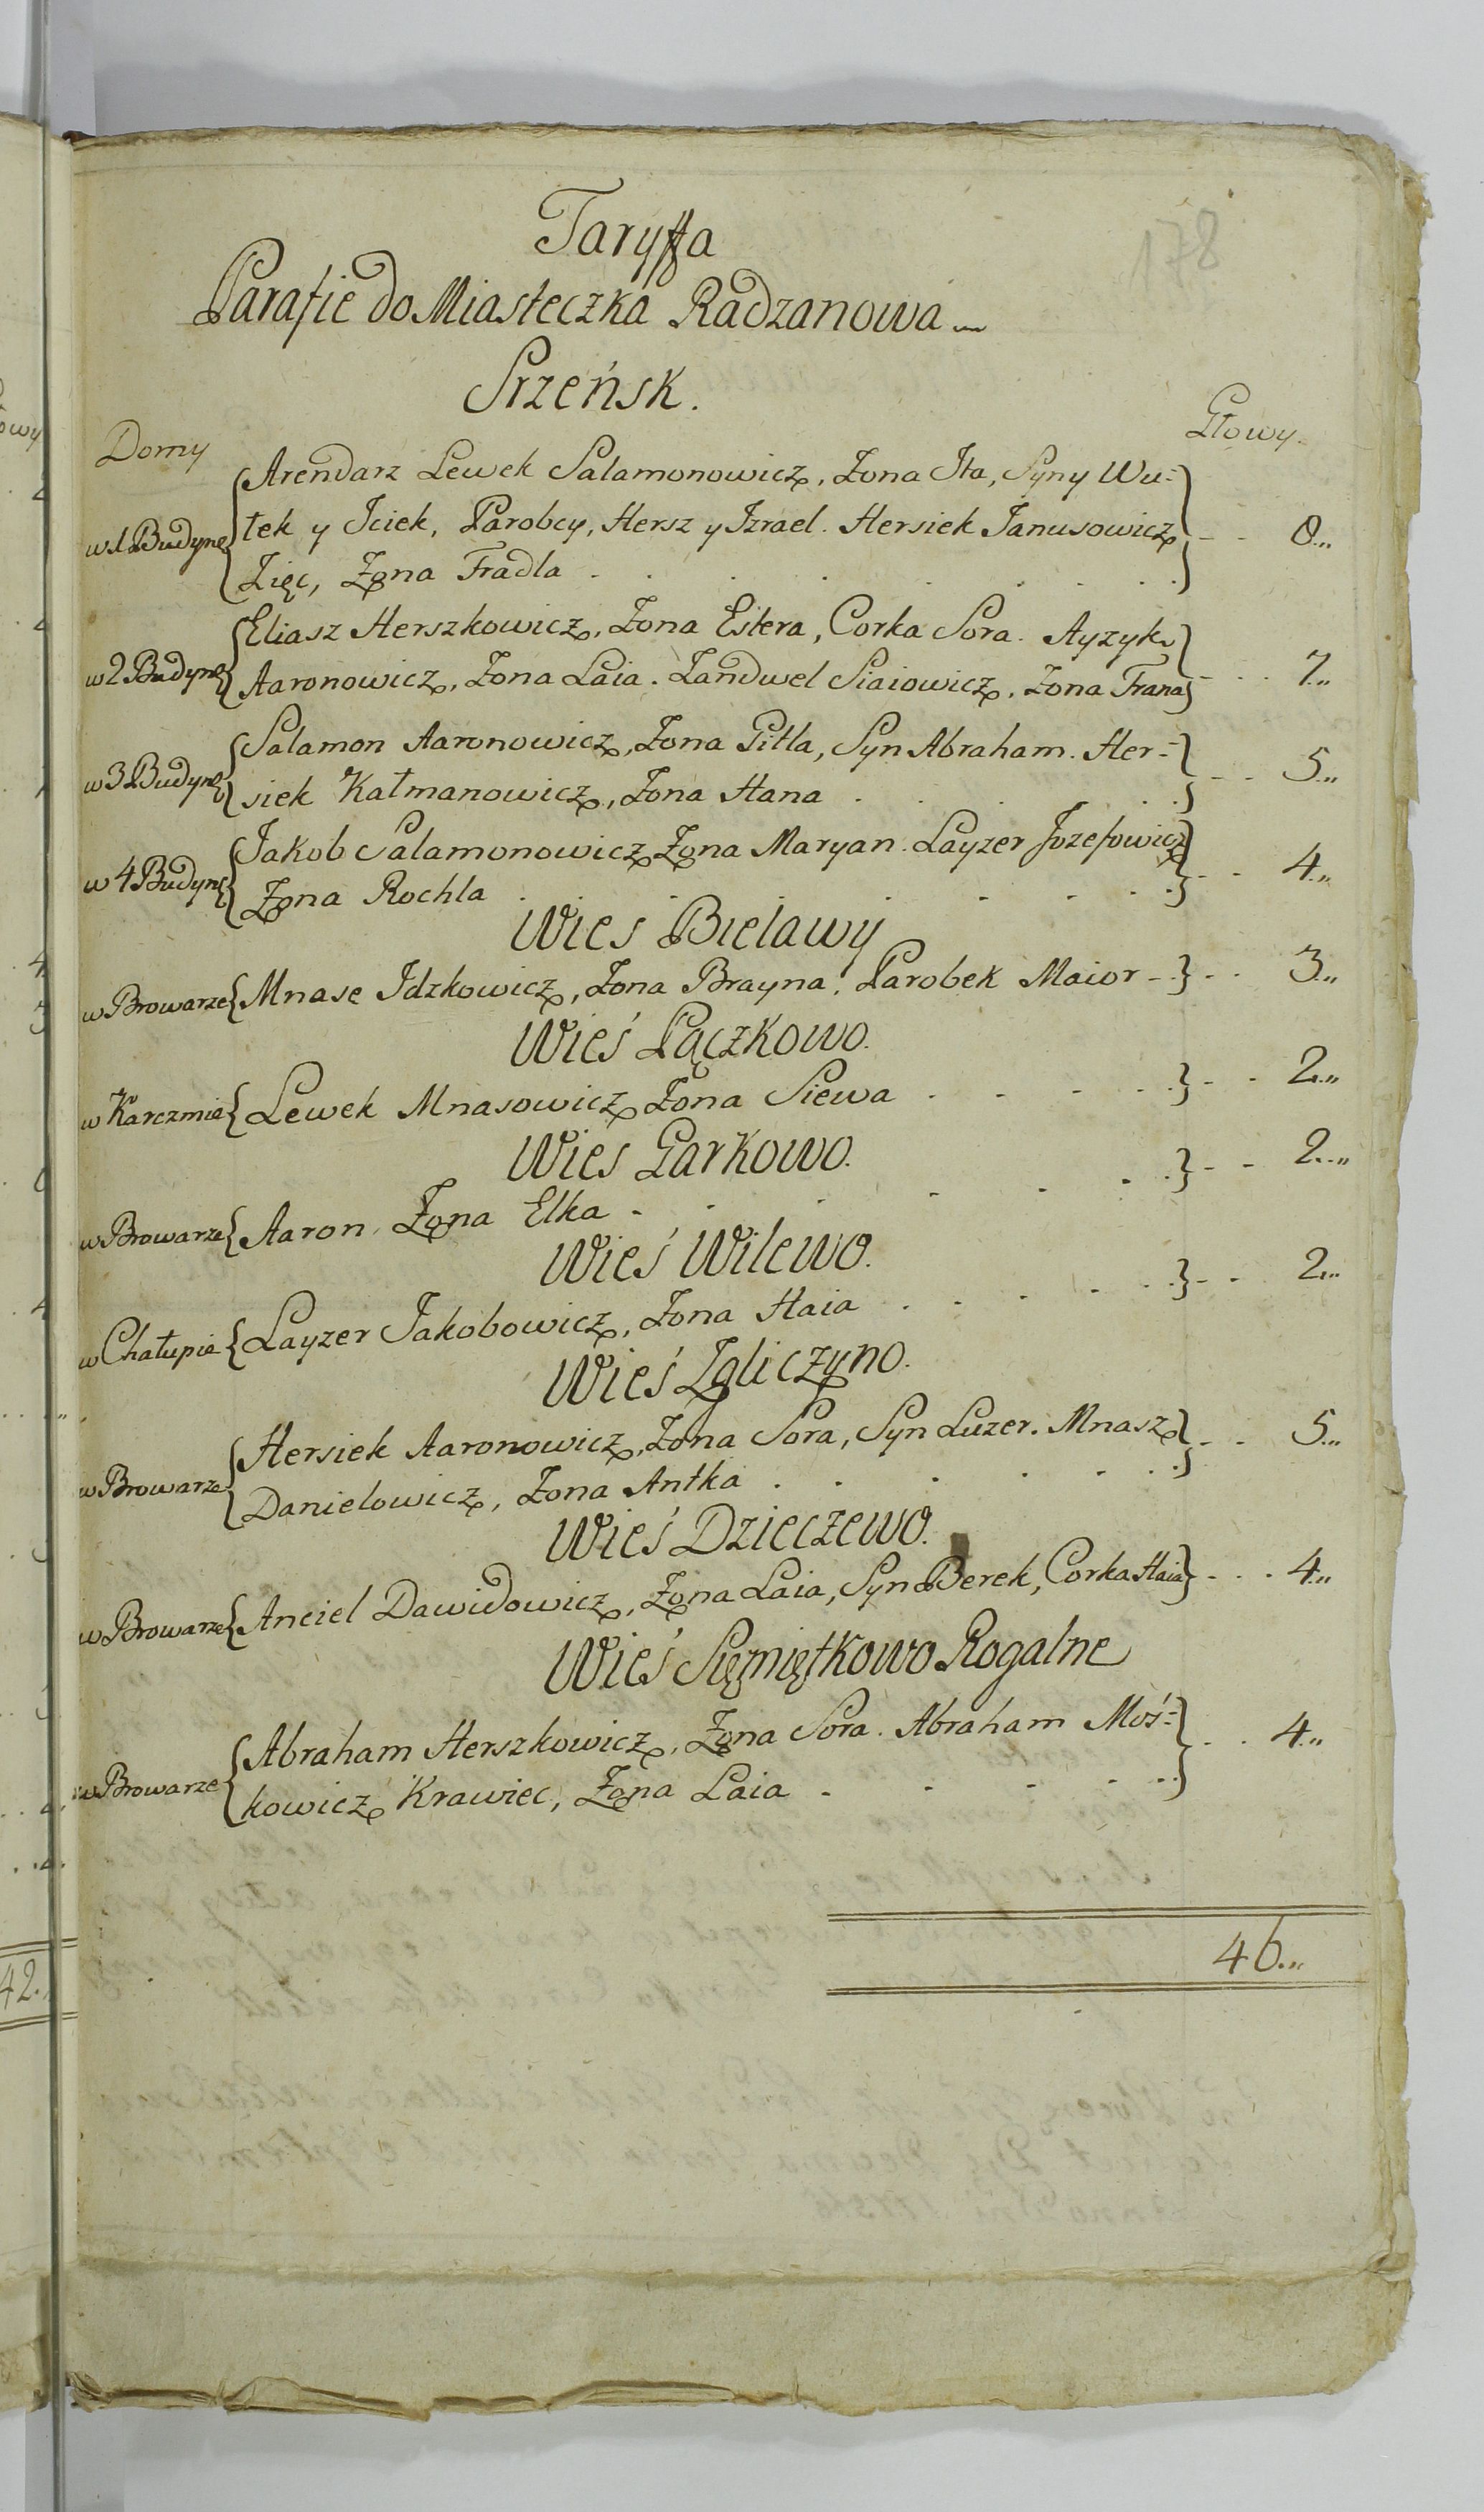 178
Taryffa
Parafie do Miasteczka Radzanowa
Srzeńsk.
Domy
Głowy
w 1 Budynę { Arendarz Lewek Salamonowicz, Zona Ita, Syny Wu=
łek y Iciek, Parobcy, Hersz y Izrael. Hersiek Janusowicz } - - 8...
Zięc, Zona Fradla . . . . . . .
w 2 Budynę { Eliasz Herszkowicz, Zona Estera, Corka Sora. Ayzyk
Aaronowicz, Zona Laia. Zandwel Siaiowicz, Zona Frana } - - - 7...
w 3 Budynę { Salamon Aaronowicz, Zona Pitla, Syn Abraham. Her=
siek Kałmanowicz, Zona Hana . . . } - - 5...
w 4 Budynę { Jakob Salamonowicz Zona Maryan. Layzer Jozefowicz
Zona Rochla . . . . . . } - - 4...
Wies Bielawy
w Browarze { Mnase Idzkowicz, Zona Brayna, Parobek Maior - } - - 3...
Wieś Pączkowo.
w Karczmie { Lewek Mnasowicz Zona Siewa . . . . } - - 2...
Wies Garkowo.
w Browarze { Aaron, Zona Elka - . . . . . } - - 2...
Wieś Wilewo.
w Chałupie { Layzer Jakobowicz, Zona Haia . . . . . } - - 2...
Wieś Zgliczyno.
w Browarze { Hersiek Aaronowicz, Zona Sora, Syn Luzer. Mnasz
Danielowicz, Zona Antka . . . . . . } - - 5...
Wieś Dzieczewo.
w Browarze { Anciel Dawidowicz, Zona Laia, Syn Berek, Corka Haia } - - - 4...
Wieś Sięmiętkowo Rogalne
w Browarze { Abraham Herszkowicz, Zona Sora. Abraham Moś=
kowicz Krawiec, Zona Laia . . . . . } - - 4...
46...
42.